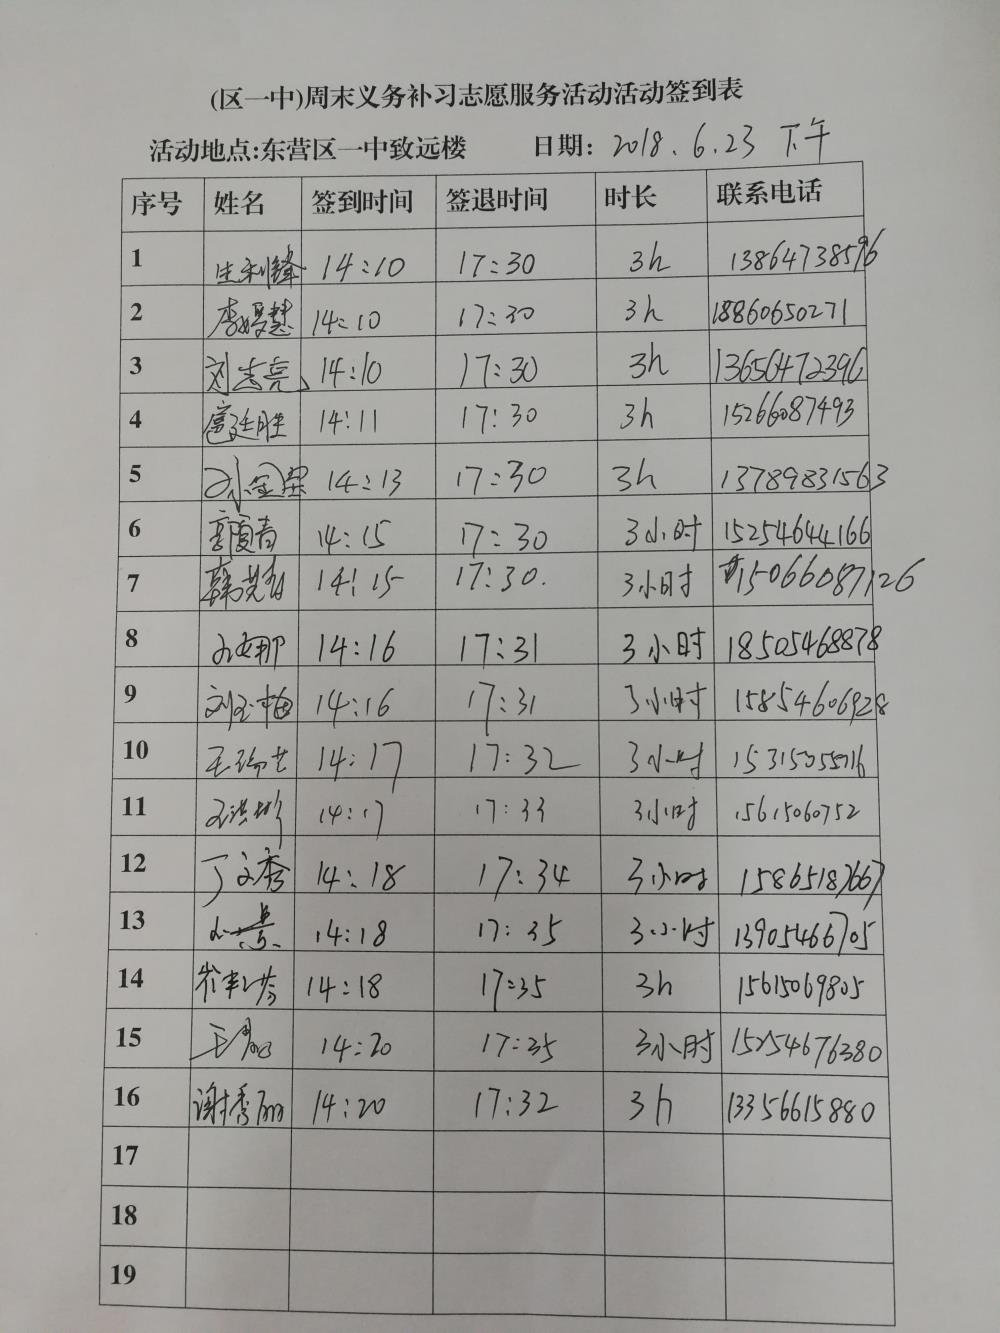 (区一中)周末义务补习志愿服务活动活动签到表
活动地点:东营区一中致远楼 日期: 2018.6.23 下午
序号 姓名 签到时间 签退时间 时长 联系电话
1 14:10 17:30 3h 13864738596
2 李婷慧 14:10 17:30 3h 18860650271
3 刘志亮 14:10 17:30 3h 13656472396
4 扈廷胜 14:11 17:30 3h 15266087493
5 14:13 17:30 3h 13789831563
6 14:15 17:30 3小时 15254644166
7 14:15 17:30. 3小时 15066087126
8 14:16 17:31 3小时 18505468878
9 刘玉梅 14:16 17:31 3小时 15854606928
10 14:17 17:32 3小时
11 14:17 17:33 3小时 15615060752
12 丁文秀 14:18 17:34 3小时 15865187667
13 14:18 17:35 3小时 13905466705
14 14:18 17:35 3h 15615069805
15 14:20 17:35 3小时 15254676380
16 谢秀丽 14:20 17:32 3h 13356615880
17
18
19